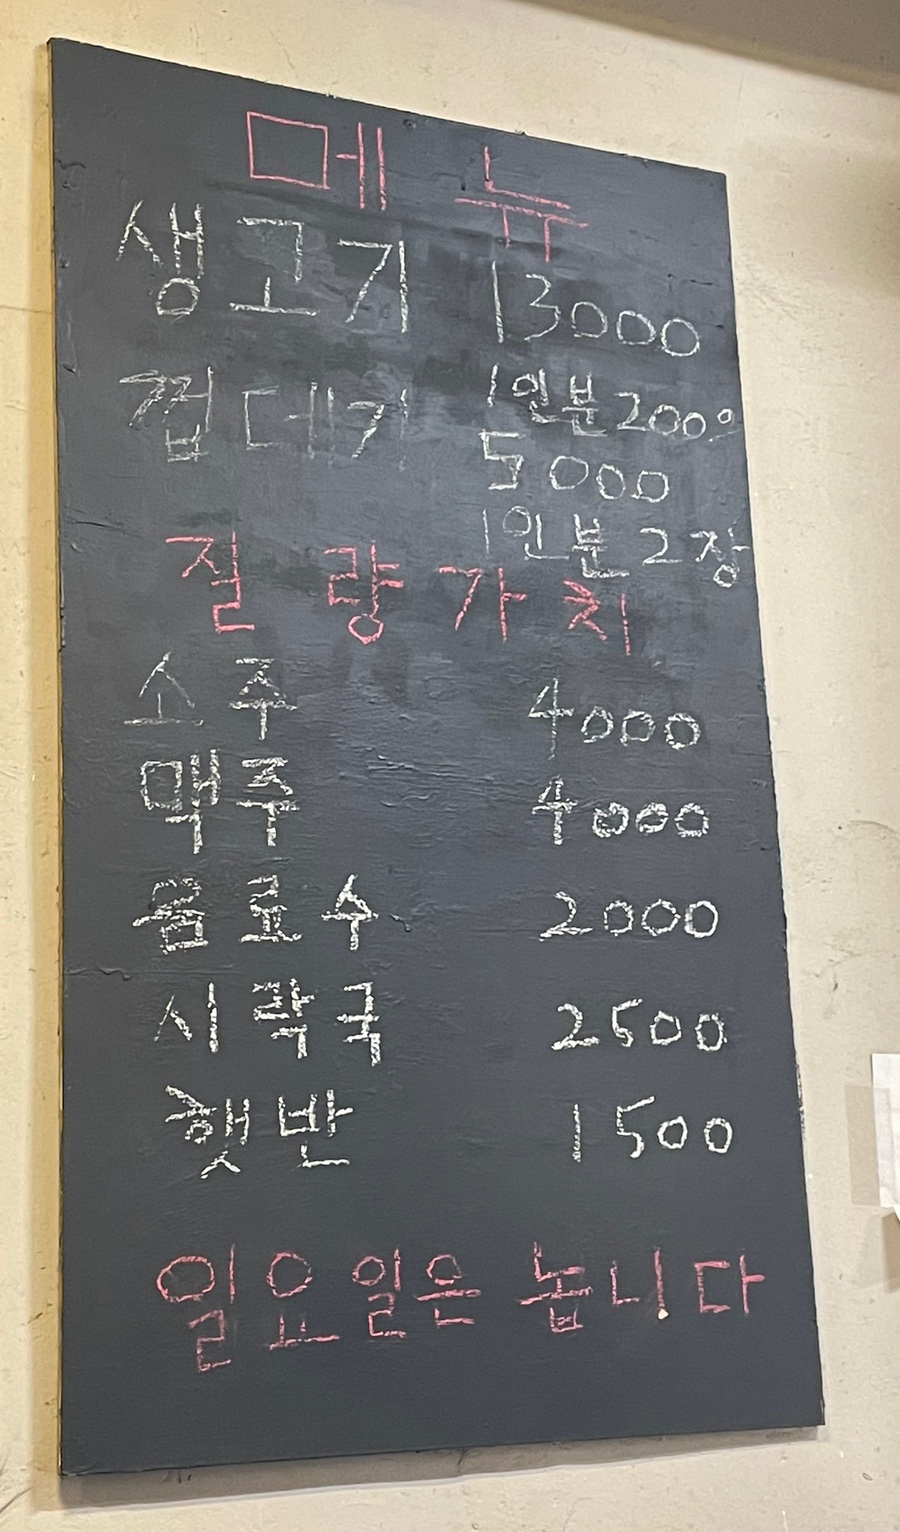 메뉴
생고기 13000
1인분 200g
껍데기 5000
1인분 2장
질량가치
소주 4000
맥주 4000
음료수 2000
시락국 2500
햇반 1500
일요일은 놉니다